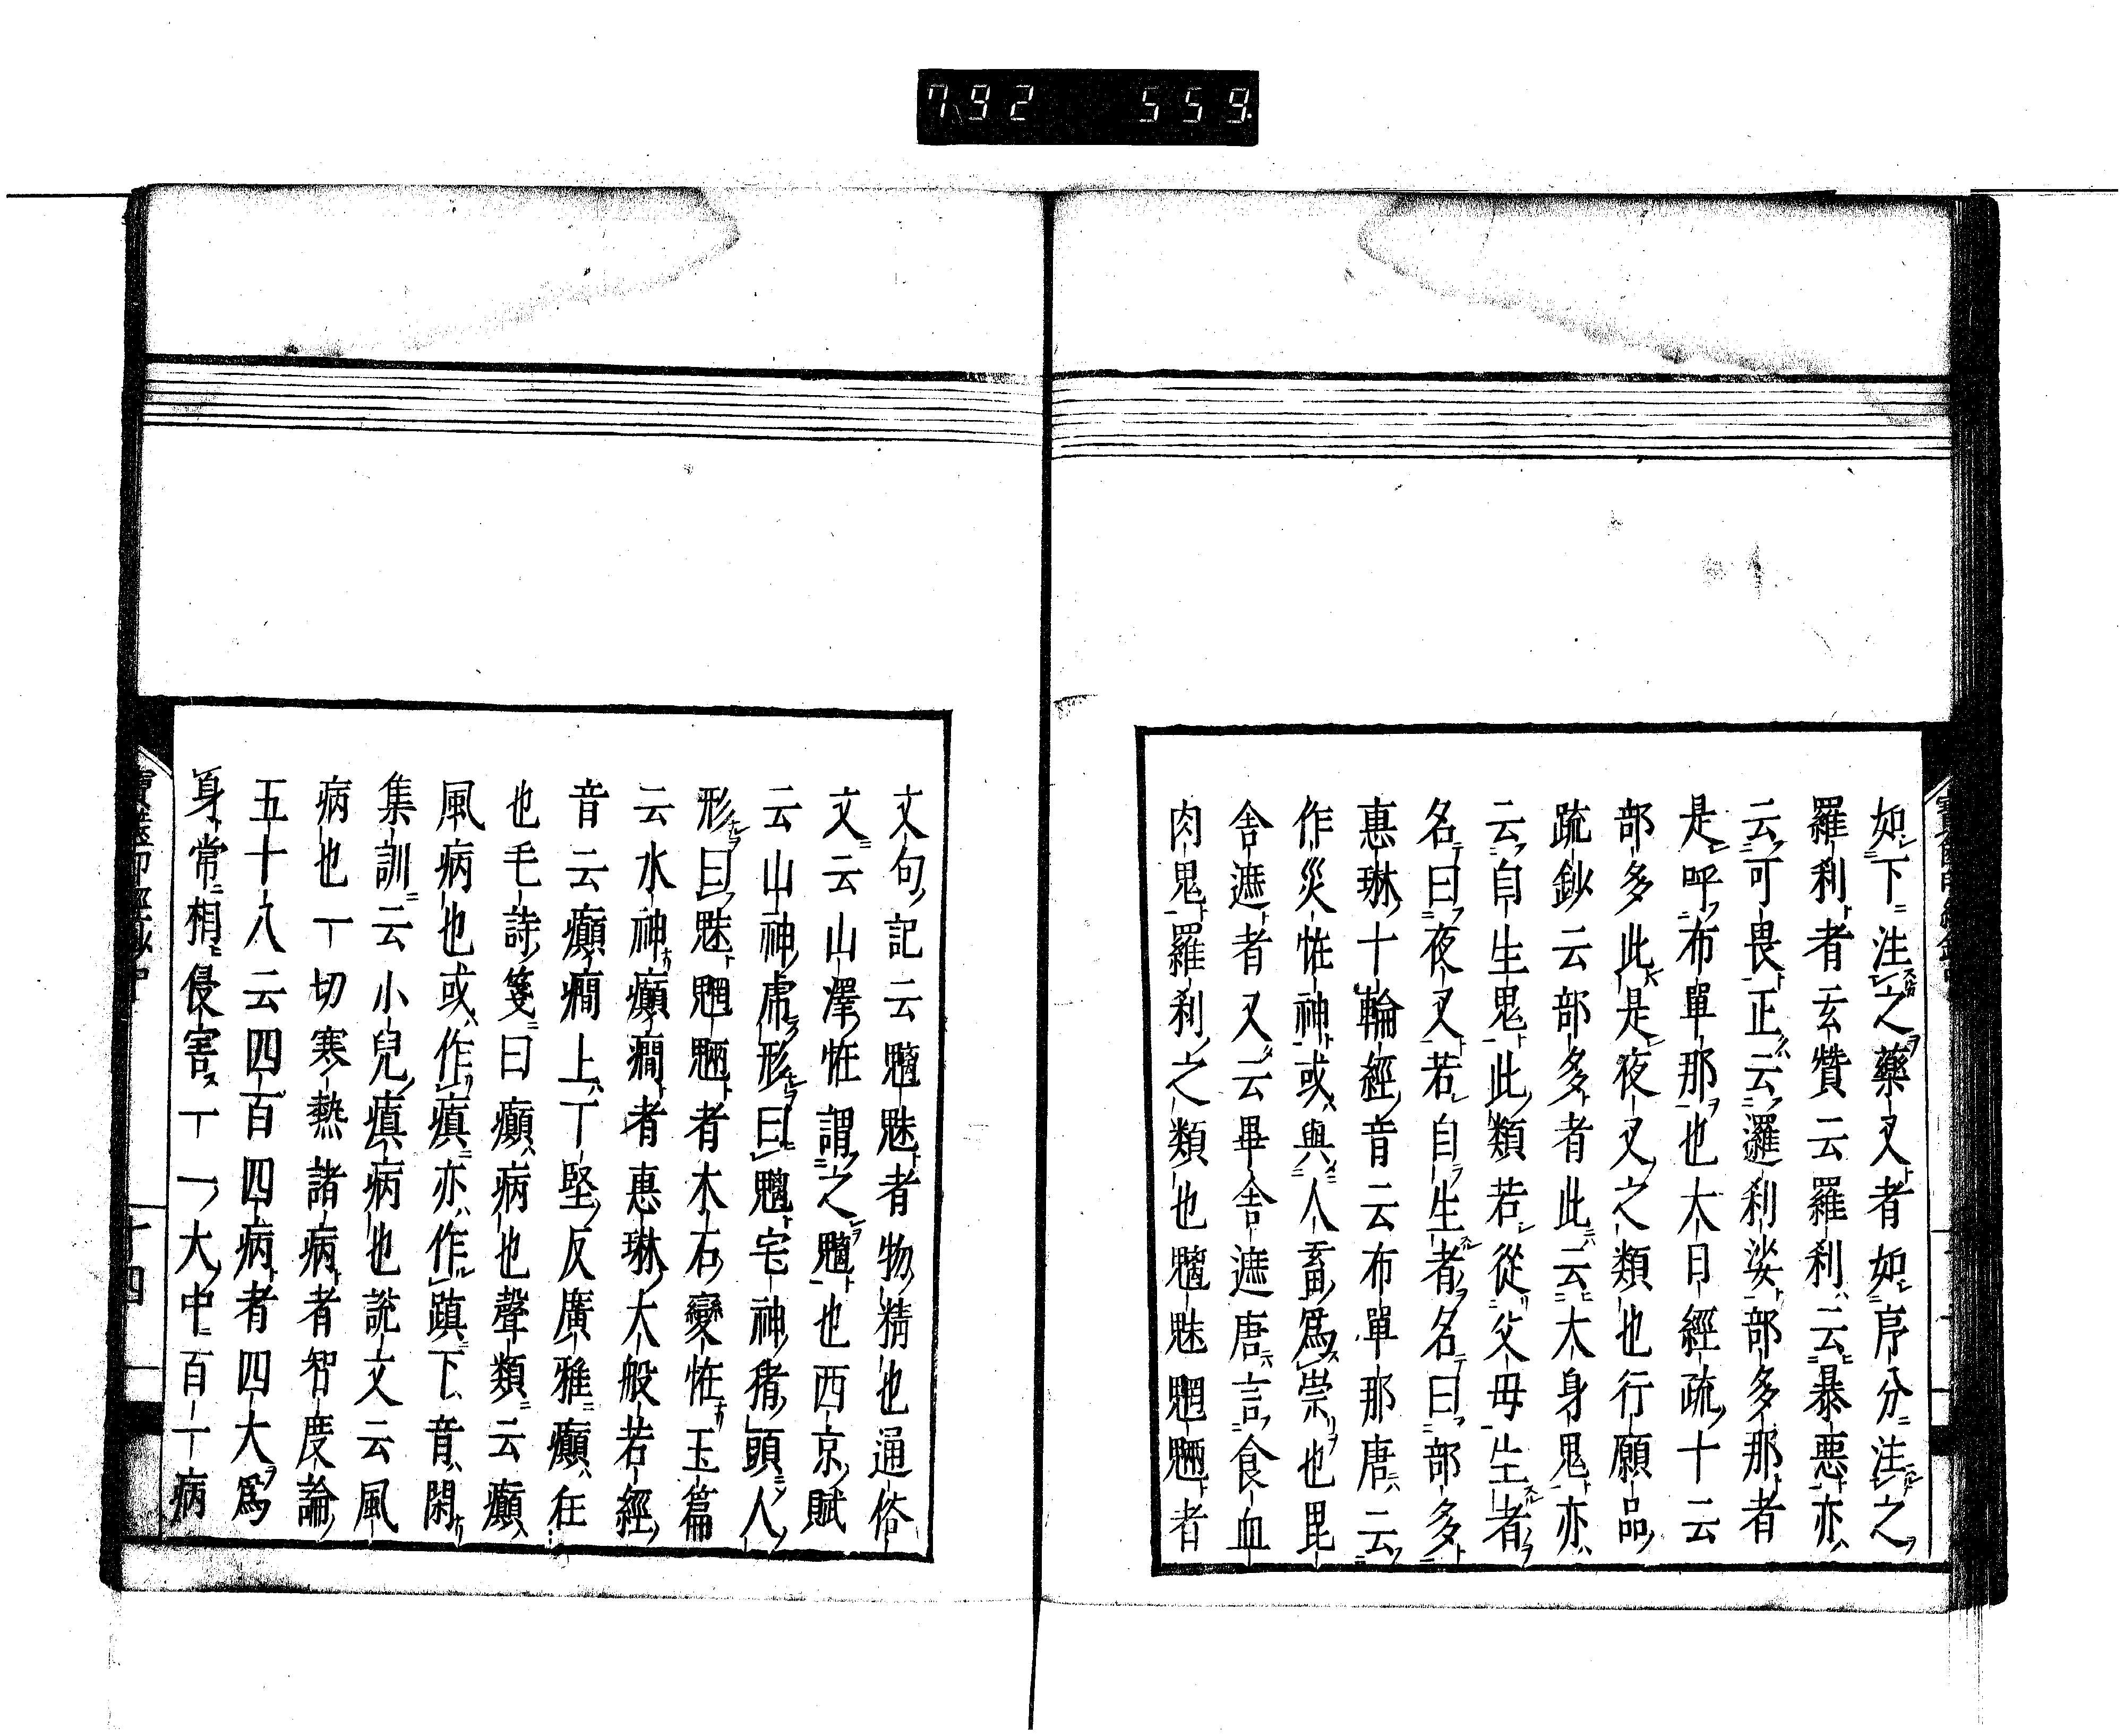 792 559
如下注之藥叉者如序分注之
羅刹者玄贊云羅刹云暴惡亦
云可畏正云邏刹娑部多那者
是呼布單那也大日經疏十云
部多此是夜叉之類也行願品
疏鈔云部多者此云大身鬼亦
云自生鬼此類若從父母生者
名曰夜叉若自生者名曰部多
惠琳十輪經音云布單那唐云
作災恠神或與人畜爲祟也毘
舎遮者又云畢舎遮唐言食血
肉鬼羅刹之類也魑魅魍魎者
文句記云魑魅者物精也通俗
文云山澤恠謂之魑也西京賦
云山神虎形曰魑宅神猪頭人
形曰魅魍魎者木石變恠玉篇
云水神癲癎者惠琳大般若經
音云癲癎上丁堅反廣雅癲狂
也毛詩箋曰癲病也聲類云癲
風病也或作瘨亦作蹎下音閑
集訓云小兒瘨病也説文云風
病也一切寒熱諸病者智度論
五十八云四百四病者四大爲
身常相侵害一一大中百一病
十四